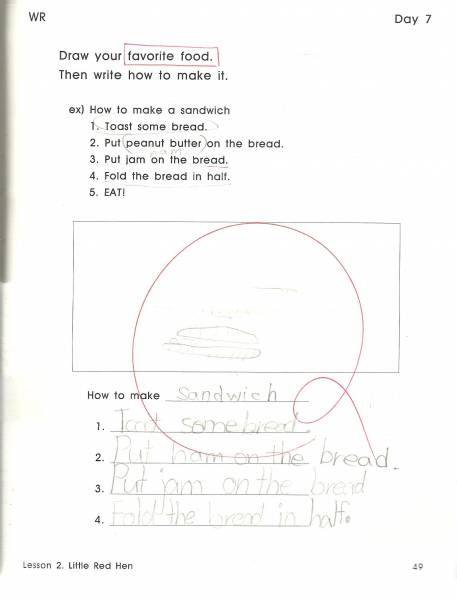 WR
Day 7
Draw your favorite food.
Then write how to make it.
ex) How to make a sandwich
1. Toast some bread.
2. Put peanut butter on the bread.
ham
3. Put jam on the bread.
4. Fold the bread in half.
5. EAT!
How to make sandwich
1. Toast some bread.
2. Put ham on the bread.
3. Put jam on the bread
4. Fold the bread in half.
Lesson 2. Little Red Hen
49